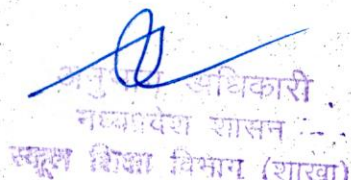 अनुभाग अधिकारी
मध्यप्रदेश शासन
स्कूल शिक्षा विभाग (शाखा)